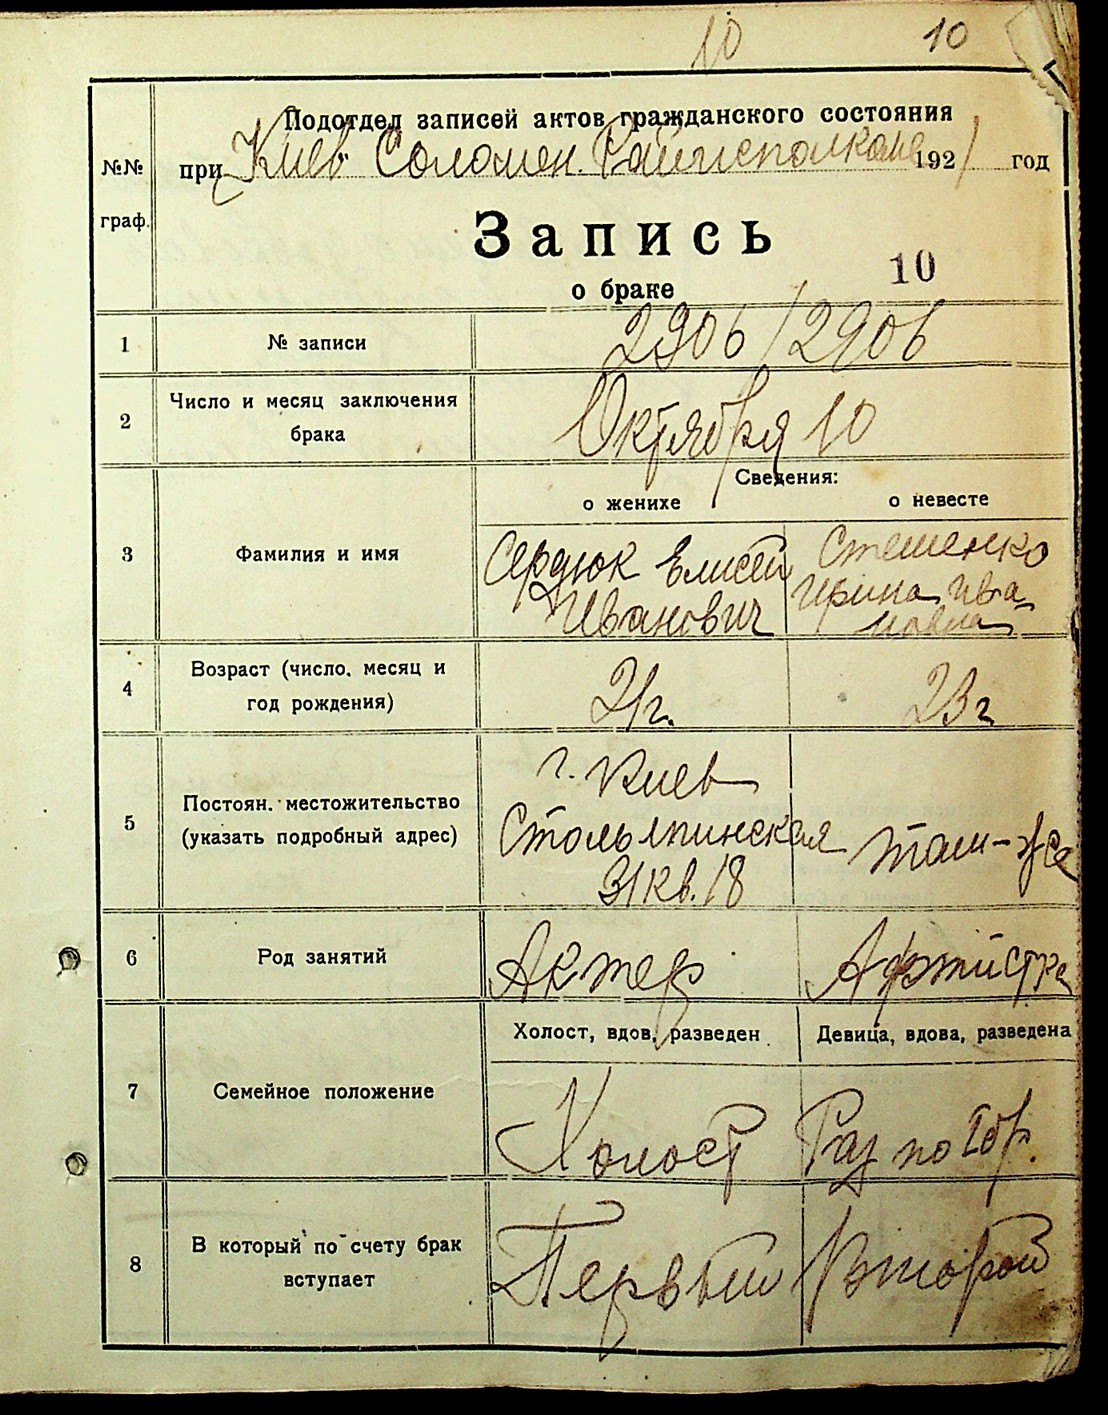 10 10
Подотдел записей актов гражданского состояния
№№ при Киев Соломен. Райисполкоме 1921 год
граф.
Запись
10
о браке
1 № записи 2906/2906
2 Число и месяц заключения брака Октября 10
Сведения:
о женихе о невесте
3 Фамилия и имя Сердюк Елисей Стешенко
Иванович Ирина Ива-
новна
4 Возраст (число, месяц и
год рождения) 21г. 23г
г. Киев
5 Постоян. местожительство
(указать подробный адрес) Столыпинская там-же
31 кв. 18
6 Род занятий Актер Артистка
Холост, вдов, разведен Девица, вдова, разведена
7 Семейное положение Холост Раз по
8 В который по счету брак
вступает Первый Второй